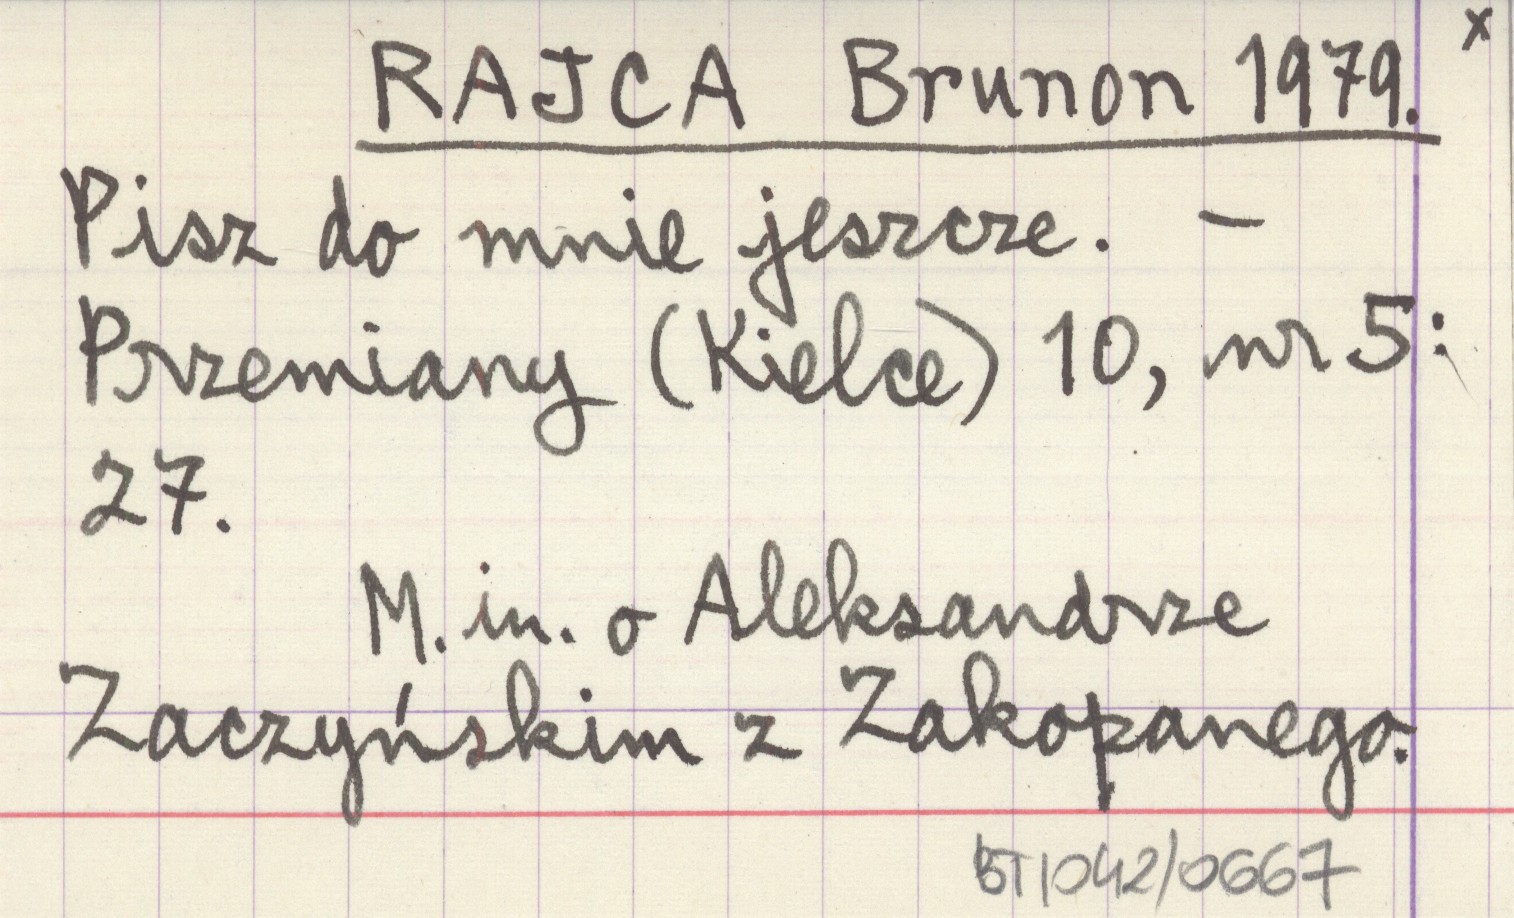 RAJCA Brunon 1979. x
Pisz do mnie jeszcze. –
Przemiany (Kielce) 10, nr 5:
27.
M. in. o Aleksandrze
Zaczyńskim z Zakopanego.
BT1042/0667